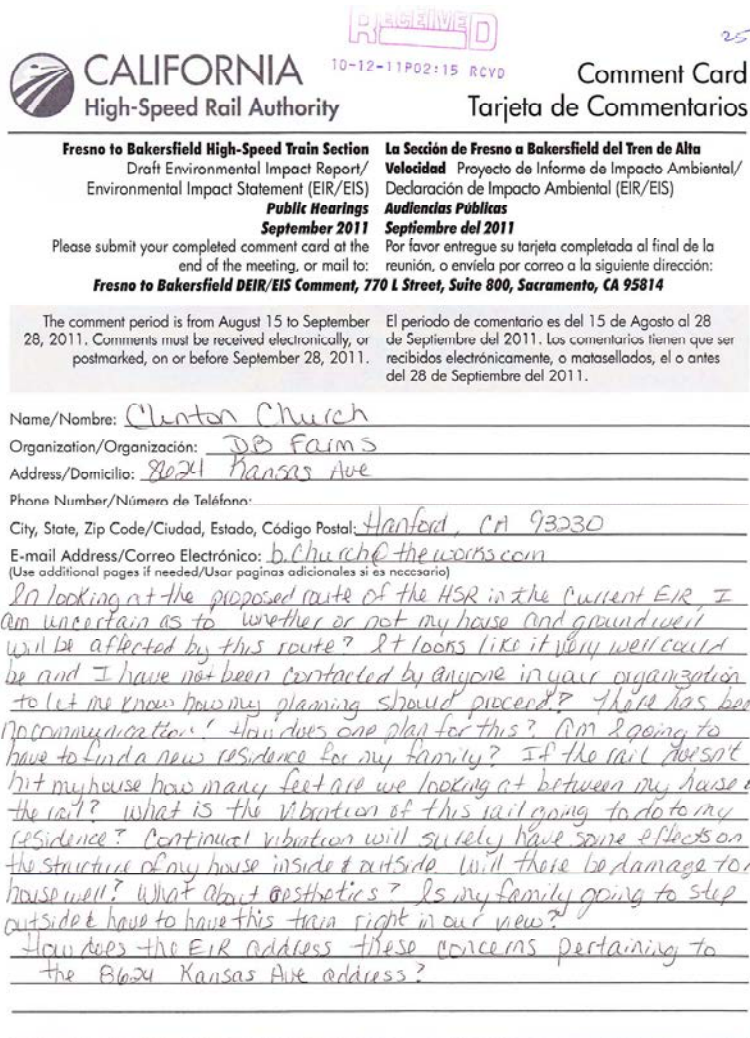 RECEIVED
25
10-12-11P02:15 RCVD
CALIFORNIA
High-Speed Rail Authority
Comment Card
Tarjeta de Comentarios
Fresno to Bakersfield High-Speed Train Section
Draft Environmental Impact Report/
Environmental Impact Statement (EIR/EIS)
Public Hearings
September 2011
Please submit your completed comment card at the
end of the meeting, or mail to:
La Sección de Fresno a Bakersfield del Tren de Alta
Velocidad Proyecto de Informe de Impacto Ambiental/
Declaración de Impacto Ambiental (EIR/EIS)
Audiencias Públicas
Septiembre del 2011
Por favor entregue su tarjeta completada al final de la
reunión, o envíela por correo a la siguiente dirección:
Fresno to Bakersfield DEIR/EIS Comment, 770 L Street, Suite 800, Sacramento, CA 95814
The comment period is from August 15 to September
28, 2011. Comments must be received electronically, or
postmarked, on or before September 28, 2011.
El periodo de comentario es del 15 de Agosto al 28
de Septiembre del 2011. Los comentarios tienen que ser
recibidos electrónicamente, o matasellados, el o antes
del 28 de Septiembre del 2011.
Name/Nombre: Clinton Church
Organization/Organización: DB Farms
Address/Domicilio: 8624 Kansas Ave
Phone Number/Número de Teléfono:
City, State, Zip Code/Ciudad, Estado, Código Postal: Hanford, CA 93230
E-mail Address/Correo Electrónico: b.church@theworks.com
(Use additional pages if needed/Usar paginas adicionales si es necesario)
In looking at the proposed route of the HSR in the current EIR, I
am uncertain as to whether or not my house and ground well
will be affected by this route? It looks like it very well could
be and I have not been contacted by anyone in your organization
to let me know how my planning should proceed? There has been
no communication! How does one plan for this? Am I going to
have to find a new residence for my family? If the rail doesn't
hit my house how many feet are we looking at between my house &
the rail? What is the vibration of this rail going to do to my
residence? Continual vibration will surely have some effects on
the structure of my house inside & outside. Will there be damage to
house well? What about aesthetics? Is my family going to step
outside & have to have this train right in our view?
How does the EIR address these concerns pertaining to
the 8624 Kansas Ave address?